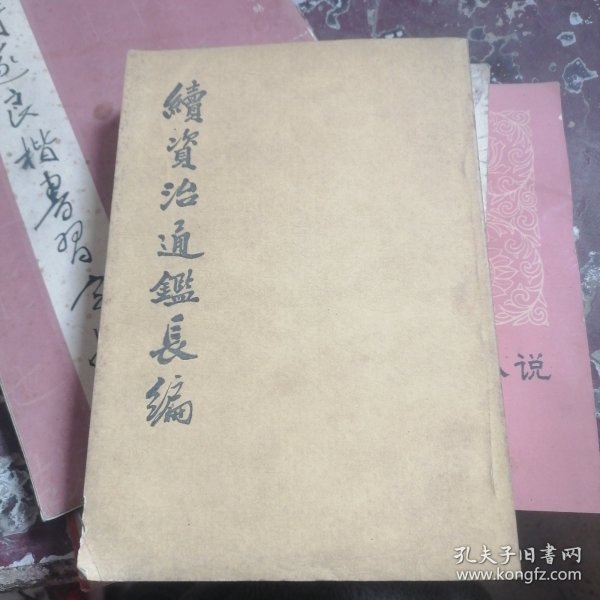 續資治通鑑長編
良楷書習
说
孔夫子旧書网
www.kongfz.com